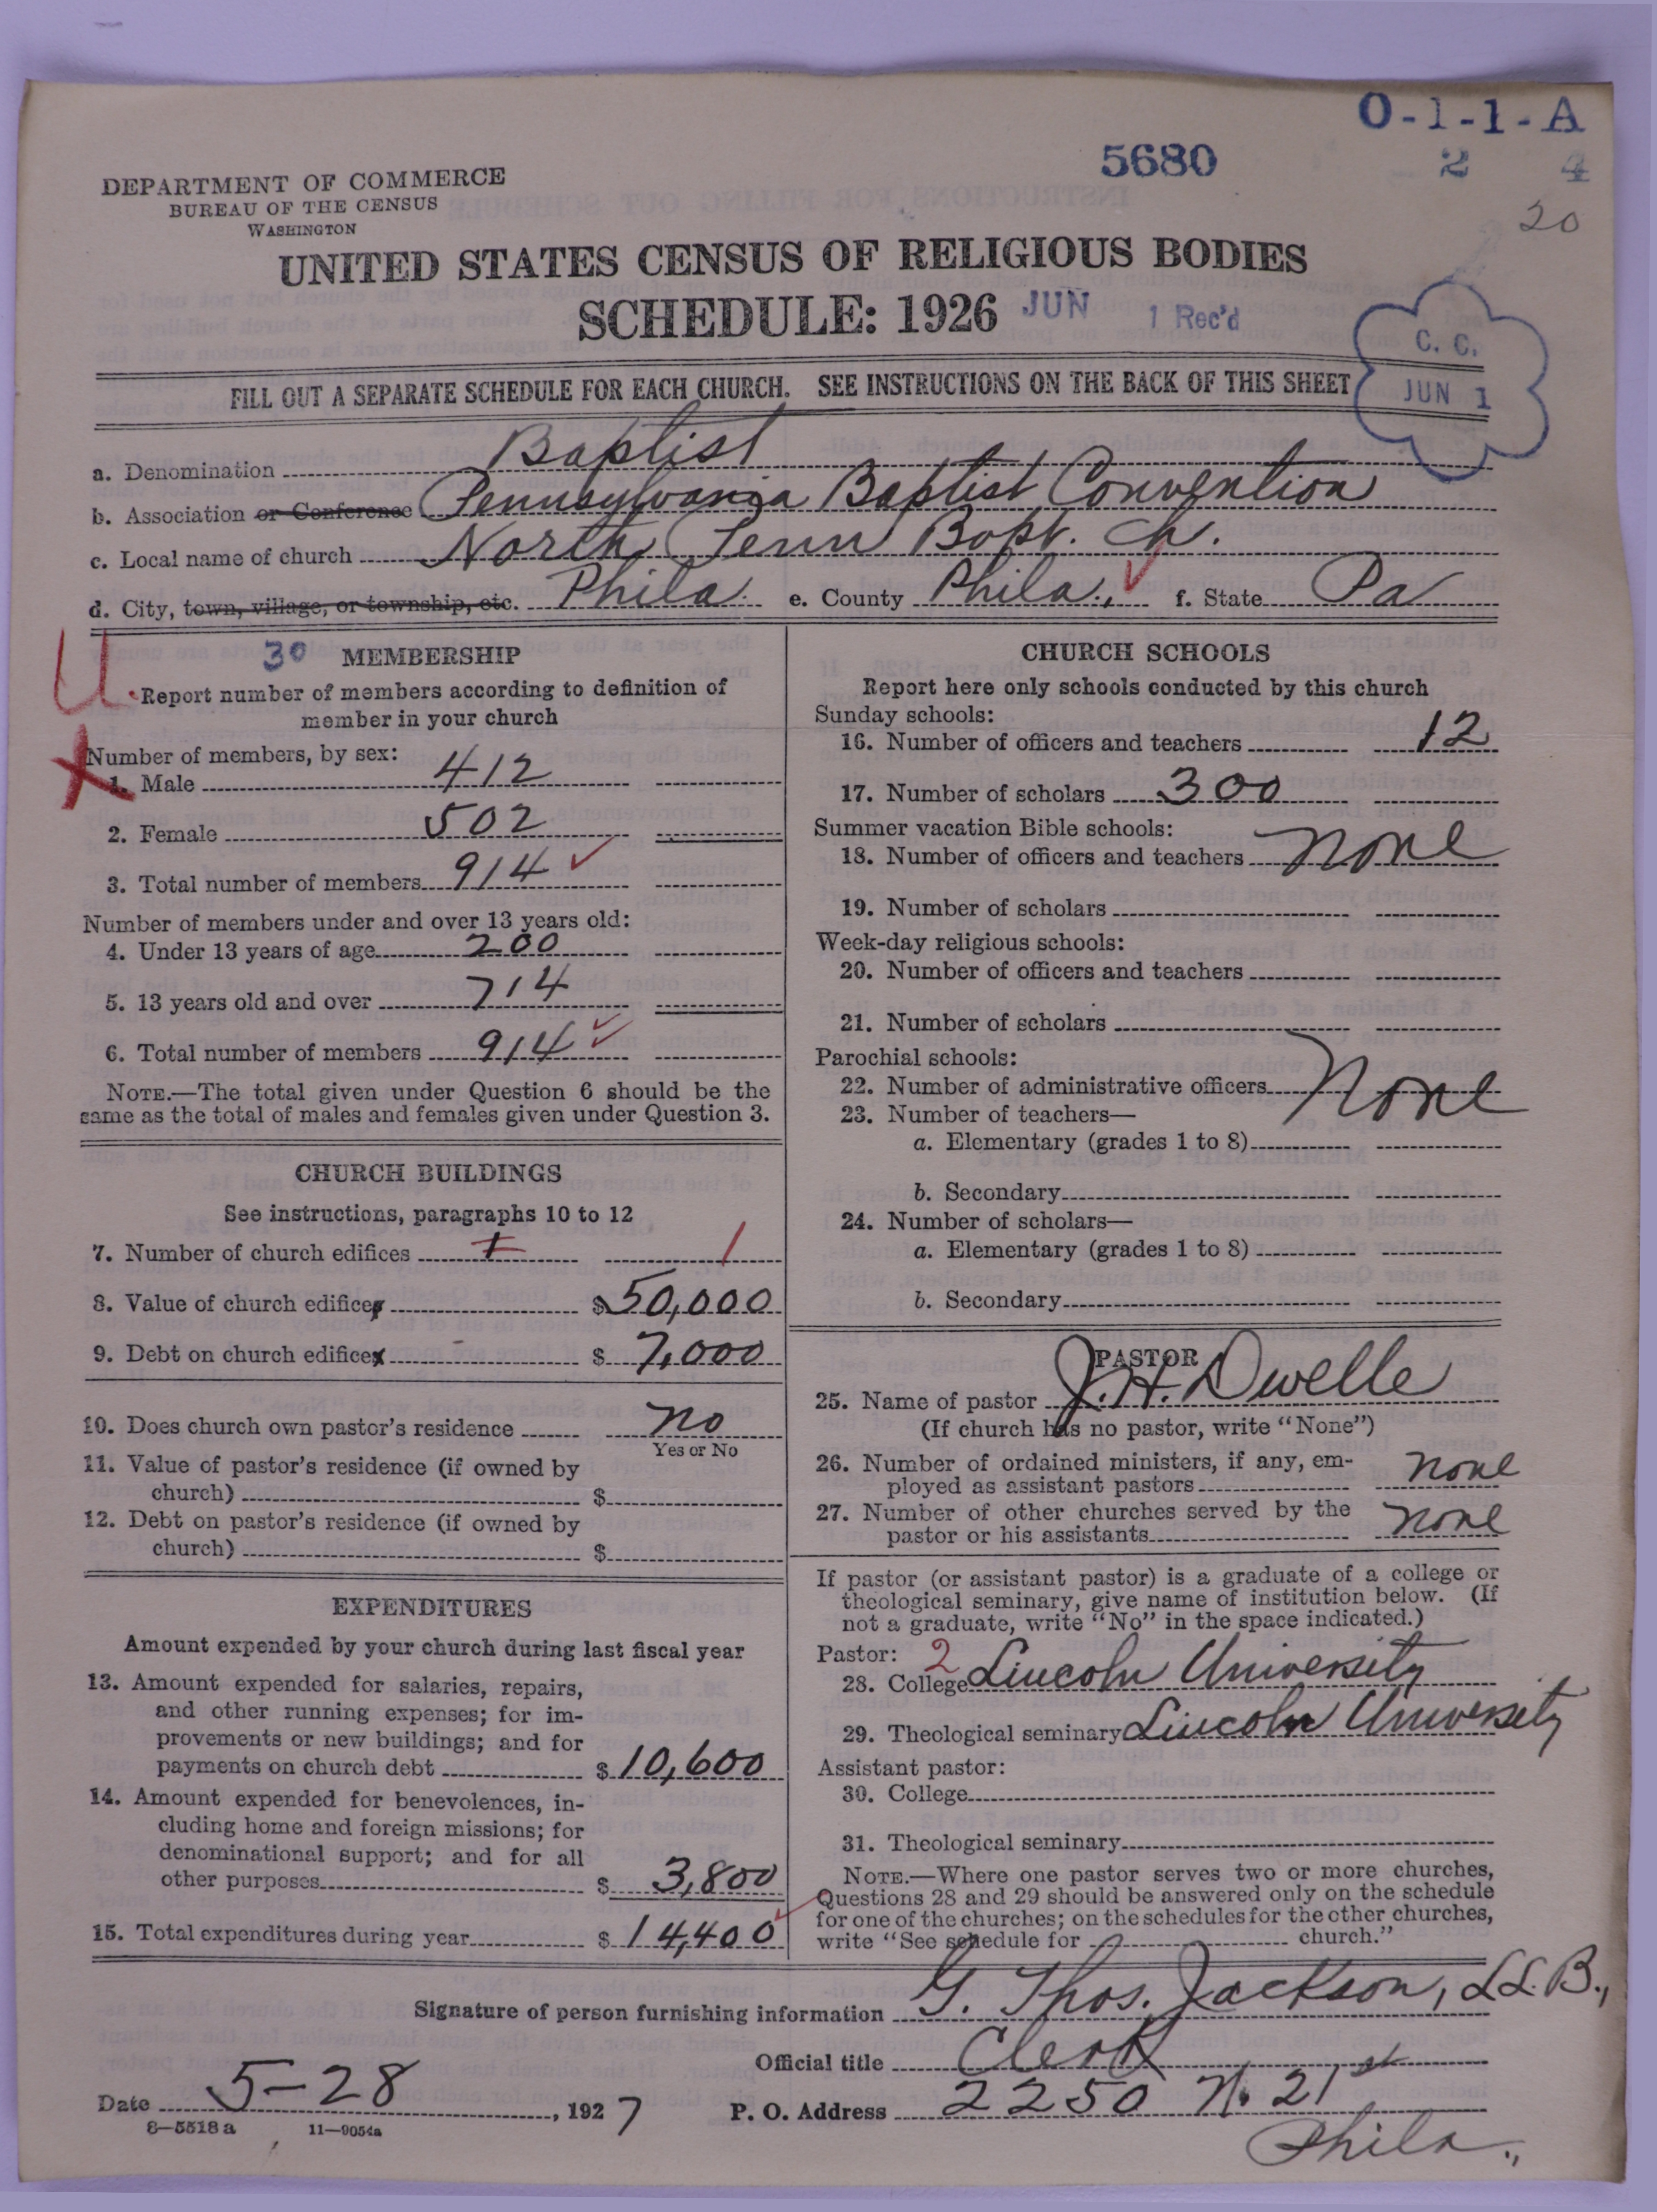 O-1-1-A
5680 2 4
20
DEPARTMENT OF COMMERCE
BUREAU OF THE CENSUS
WASHINGTON
UNITED STATES CENSUS OF RELIGIOUS BODIES
SCHEDULE: 1926 JUN 1 Rec'd
C. C.
JUN 1
FILL OUT A SEPARATE SCHEDULE FOR EACH CHURCH. SEE INSTRUCTIONS ON THE BACK OF THIS SHEET
a. Denomination Baptist
b. Association or Conference Pennsylvania Baptist Convention
c. Local name of church North Penn Bapt. Ch.
d. City, town, village, or township, etc. Phila. e. County Phila., f. State Pa
U
30 MEMBERSHIP
Report number of members according to definition of
member in your church
X
Number of members, by sex:
1. Male 412
2. Female 502
3. Total number of members 914
Number of members under and over 13 years old:
4. Under 13 years of age 200
5. 13 years old and over 714
6. Total number of members 914
NOTE.—The total given under Question 6 should be the
same as the total of males and females given under Question 3.
CHURCH BUILDINGS
See instructions, paragraphs 10 to 12
7. Number of church edifices 1 1
8. Value of church edifices $50,000
9. Debt on church edifices $ 7,000
10. Does church own pastor's residence no
Yes or No
11. Value of pastor's residence (if owned by
church) $
12. Debt on pastor's residence (if owned by
church) $
EXPENDITURES
Amount expended by your church during last fiscal year
13. Amount expended for salaries, repairs,
and other running expenses; for im-
provements or new buildings; and for
payments on church debt $ 10,600
14. Amount expended for benevolences, in-
cluding home and foreign missions; for
denominational support; and for all
other purposes $ 3,800
15. Total expenditures during year $ 14,400
CHURCH SCHOOLS
Report here only schools conducted by this church
Sunday schools:
16. Number of officers and teachers 12
17. Number of scholars 300
Summer vacation Bible schools:
18. Number of officers and teachers none
19. Number of scholars
Week-day religious schools:
20. Number of officers and teachers
21. Number of scholars
Parochial schools:
22. Number of administrative officers None
23. Number of teachers—
a. Elementary (grades 1 to 8)
b. Secondary
24. Number of scholars—
a. Elementary (grades 1 to 8)
b. Secondary
PASTOR
25. Name of pastor J. H. Dwelle
(If church has no pastor, write "None")
26. Number of ordained ministers, if any, em-
ployed as assistant pastors none
27. Number of other churches served by the
pastor or his assistants none
If pastor (or assistant pastor) is a graduate of a college or
theological seminary, give name of institution below. (If
not a graduate, write "No" in the space indicated.)
Pastor: 2
28. College Lincoln University
29. Theological seminary Lincoln University
Assistant pastor:
30. College
31. Theological seminary
NOTE.—Where one pastor serves two or more churches,
Questions 28 and 29 should be answered only on the schedule
for one of the churches; on the schedules for the other churches,
write "See schedule for church."
Signature of person furnishing information G. Thos. Jackson, LL.B.,
Official title Clerk
Date 5-28, 1927 P. O. Address 2250 N. 21st
8-5518a 11-9054a
Phila.,